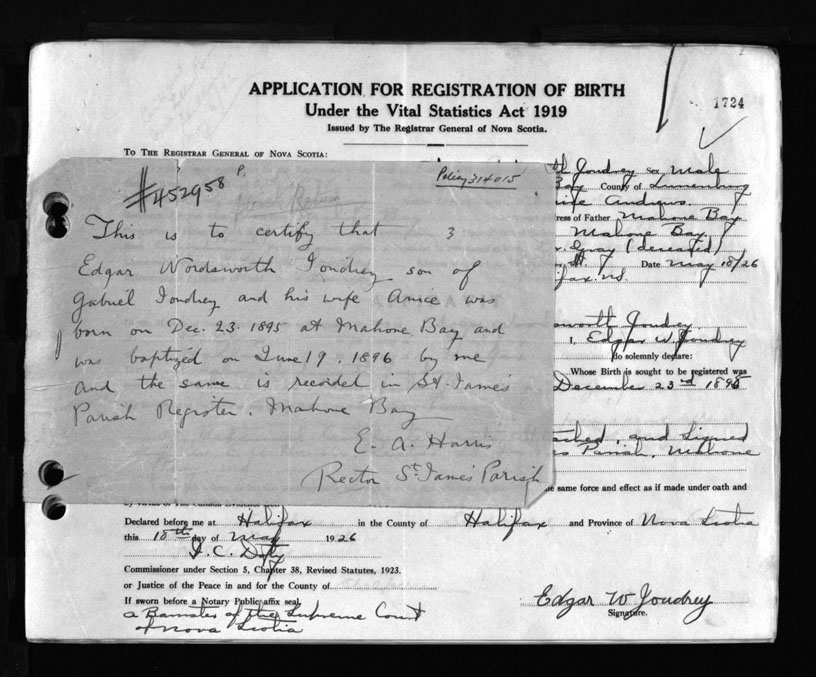 APPLICATION FOR REGISTRATION OF BIRTH
Under the Vital Statistics Act 1919
Issued by The Registrar General of Nova Scotia.
1724
TO THE REGISTRAR GENERAL OF NOVA SCOTIA:
Joudrey Sex Male
Bay County of Lunenburg
wife Andrews
ress of Father Mahone Bay
Mahone Bay
Gray (deceased)
Date May 18/26
ifax. N.S.
sworth Joudrey
I, Edgar W. Joudrey
do solemnly declare:
Whose Birth is sought to be registered was
December 23rd 1895
ched, and Signed
Parish, Mahone
he same force and effect as if made under oath and
#452958
P.
Policy 314015
This is to certify that 3
Edgar Wordsworth Joudrey son of
Gabriel Joudrey and his wife Anice was
born on Dec. 23. 1895 at Mahone Bay and
was baptized on June 19. 1896 by me
and the same is recorded in St. James
Parish Register. Mahone Bay
E. A. Harris
Rector St. James Parish
Declared before me at Halifax in the County of Halifax and Province of Nova Scotia
this 18th day of May 1926
J. C. Doty
Commissioner under Section 5, Chapter 38, Revised Statutes, 1923.
or Justice of the Peace in and for the County of
If sworn before a Notary Public affix seal.
a Barrister of the Supreme Court
of Nova Scotia
Edgar W Joudrey
Signature.